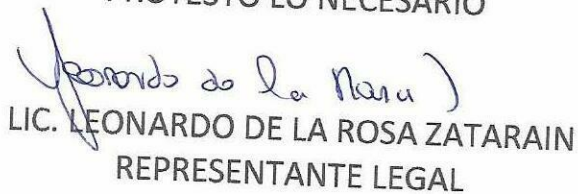 PROTESTO LO NECESARIO
Leonardo de la Rosa
LIC. LEONARDO DE LA ROSA ZATARAIN
REPRESENTANTE LEGAL